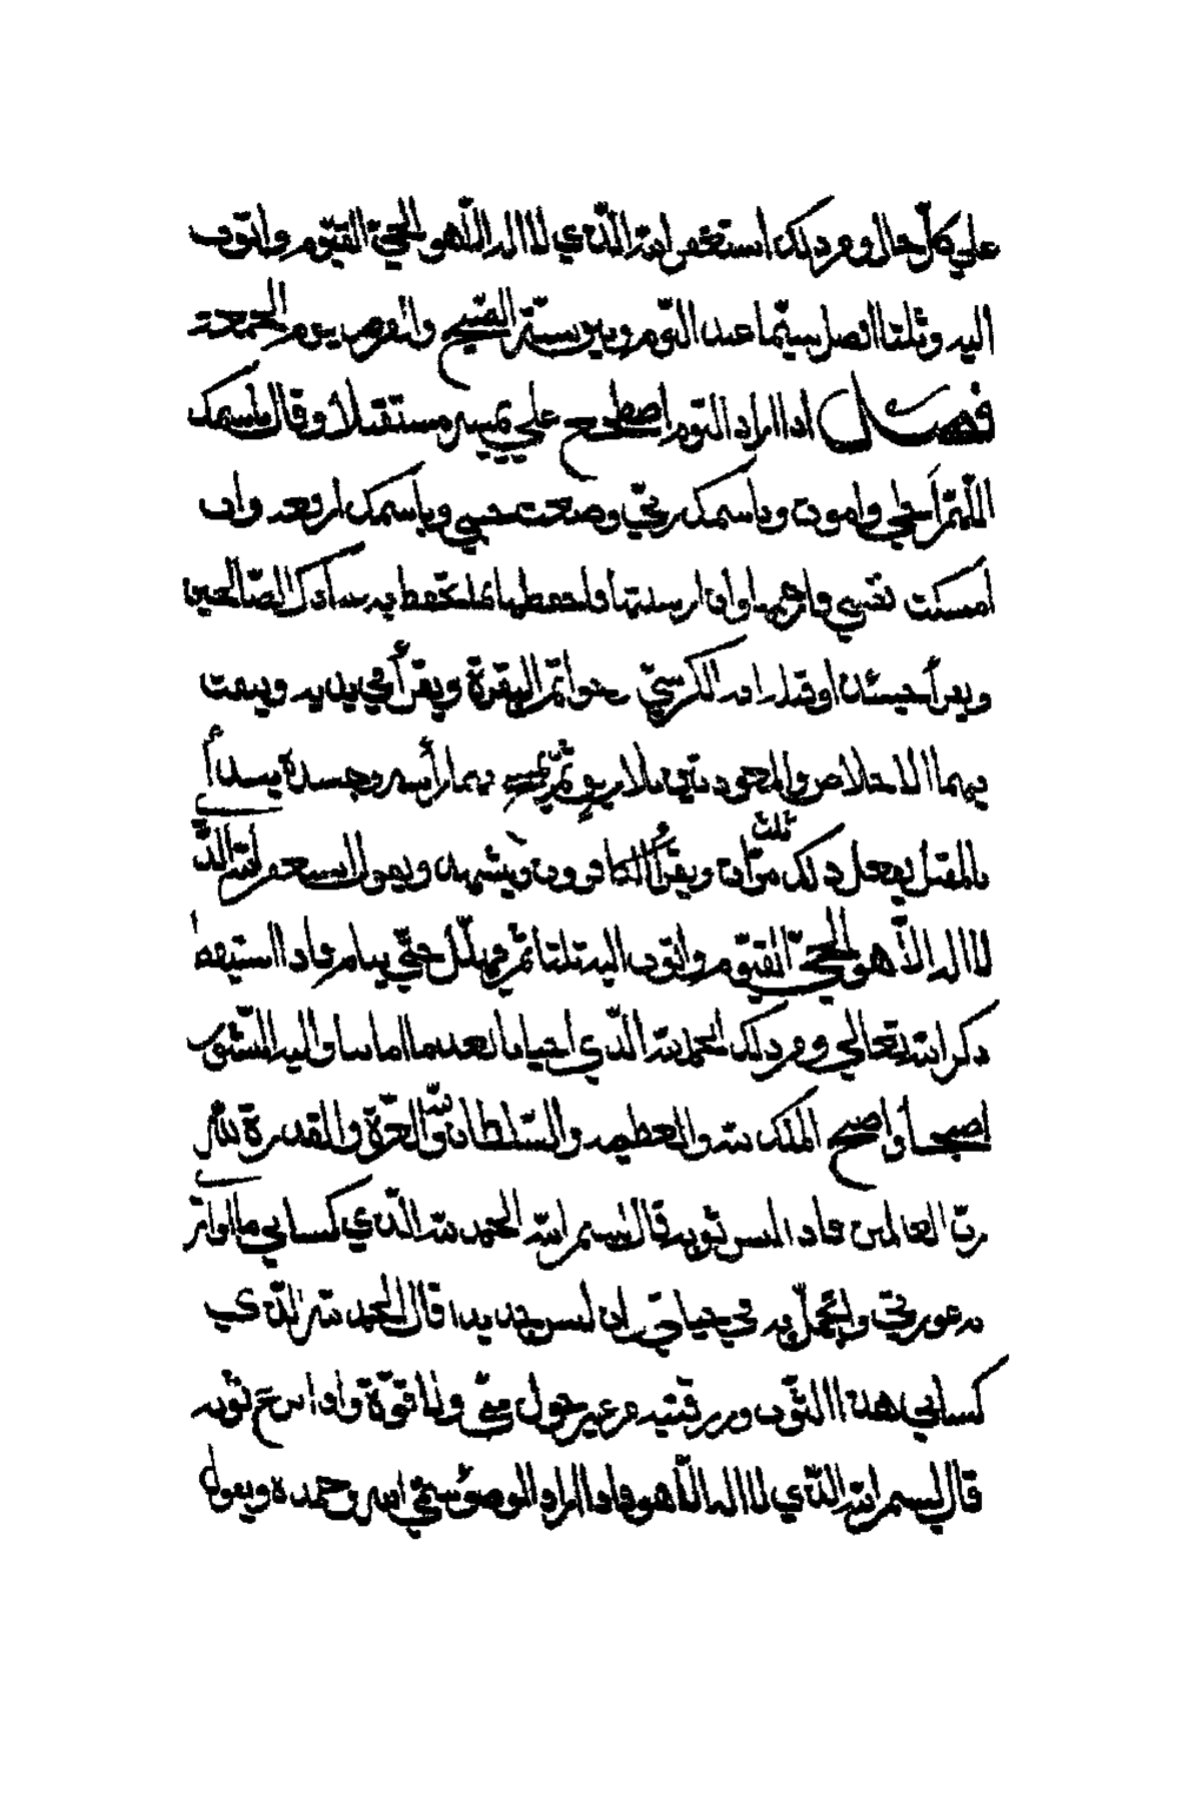 علي كل حال ومن ذلك استغفر الله الذي لا اله الا هو الحي القيوم واتوب
اليه وثلثا افضل سيما عند النوم وبين سنة الصبح والفرض يوم الجمعة
فصل اذا اراد النوم اضطجع علي يمينه مستقبلا وقال باسمك
اللهم أحيي واموت وباسمك ربي وضعت جنبي وباسمك ارفعه وان
امسكت نفسي فارحمها وان ارسلتها فاحفظها بما تحفظ به عبادك الصالحين
ويقرأ اية الكرسي خواتم البقرة ويقرأ في يديه وينفث
فيهما الاخلاص والمعوذتين بلا ريق ثم يمسح بهما رأسه وجسده يبدأ
بالمقبل يفعل ذلك ثلث مرات ويقرأ الكافرون ويقول استغفر الله الذي
لا اله الا هو الحي القيوم واتوب اليه ثلثا ثم حتي ينام فاذا استيقظ
ذكر الله تعالي ومن ذلك الحمد لله الذي احيانا بعد ما اماتنا واليه النشور
اصبحنا واصبح الملك لله والعظمة والسلطان لله والعزة والقدرة لله
رب العالمين فاذا لبس ثوبه قال بسم الله الحمد لله الذي كساني ما اواري
به عورتي واتجمل به في حياتي وان لبس جديدا قال الحمد لله الذي
كساني هذا الثوب ورزقنيه من غير حول مني ولا قوة واذا نزع ثوبه
قال بسم الله الذي لا اله الا هو فاذا اراد الوضوء سمي الله وحمده ويقول